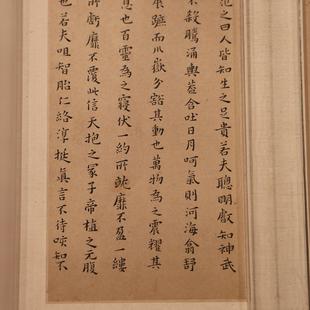 之曰人皆知生之足貴若夫聰明叡知神武
殺騰涌輿蓋含吐日月呵氣則河海翕舒
蹠而川嶽分豁其動也萬物為之震耀其
息也百靈為之寢伏一約所靡不盈一縷
所虧靡不覆此信天抱之冢子帝植之元腹
也若夫咀智胎仁絡淳真言不待啖知不